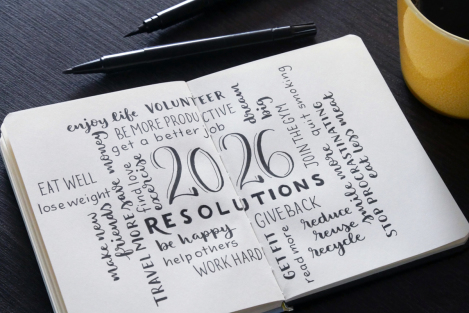 enjoy life
VOLUNTEER
BE MORE PRODUCTIVE
get a better job
dream big
EAT WELL
lose weight
make new friends
save money
TRAVEL MORE
find love
exercise
2026
RESOLUTIONS
be happy
help others
WORK HARD
GIVE BACK
GET FIT
read more
reduce
reuse
recycle
JOIN THE GYM
quit smoking
smile more
STOP PROCRASTINATING
eat less meat